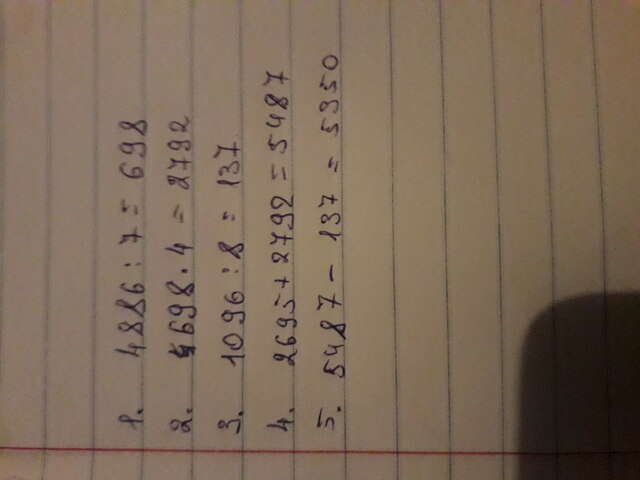 1. 4886 : 7 = 698
2. 698 · 4 = 2792
3. 1096 : 8 = 137
4. 2695 + 2792 = 5487
5. 5487 - 137 = 5350